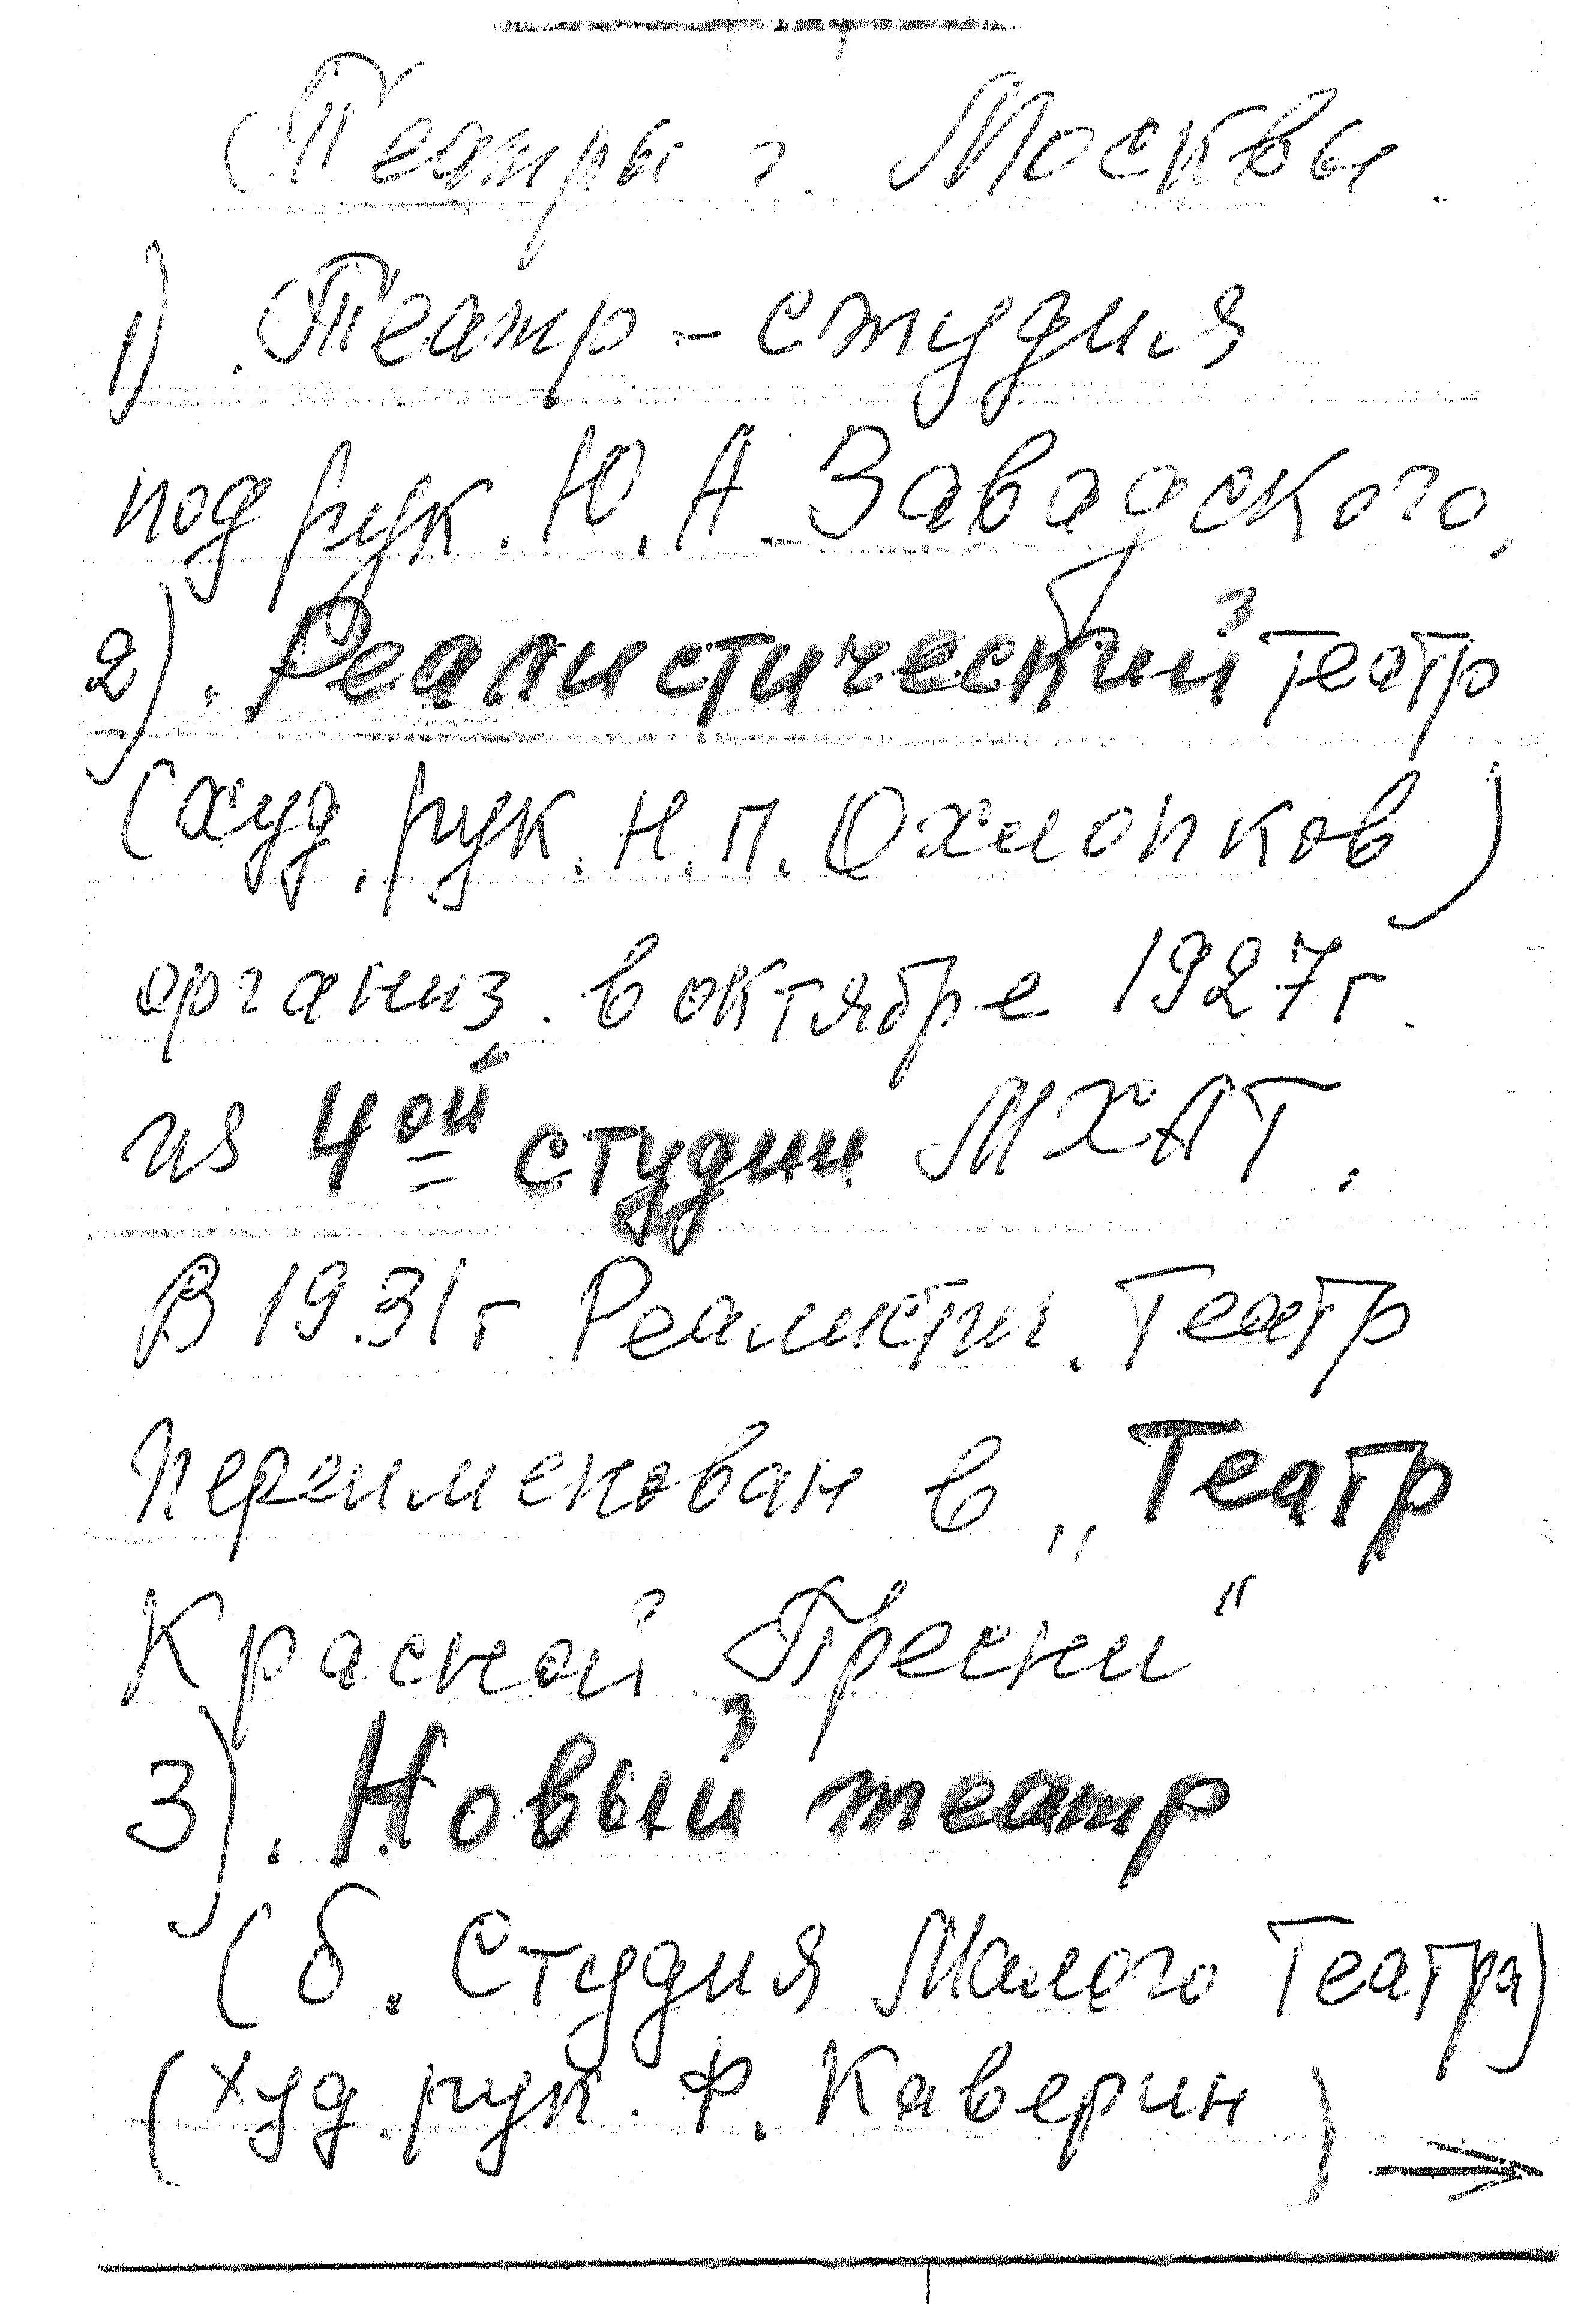 Театры г. Москвы.
1). Театр-студия
под рук. Ю. А. Завадского,
2). Реалистический театр
(худ. рук. Н. П. Охлопков)
организ. в октябре 1927 г.
из 4ой студии МХАТ.
В 1931 г Реалистич. Театр
переименован в „Театр
Красной Пресни"
3). Новый театр
(б. Студия Малого Театра)
(худ. рук. Ф. Каверин) →